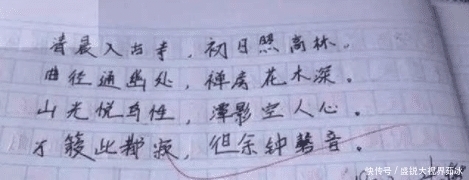 清晨入古寺，初日照高林。
曲径通幽处，禅房花木深。
山光悦鸟性，潭影空人心。
万籁此都寂，但余钟磬音。
快传号/盛锐大视界茹冰